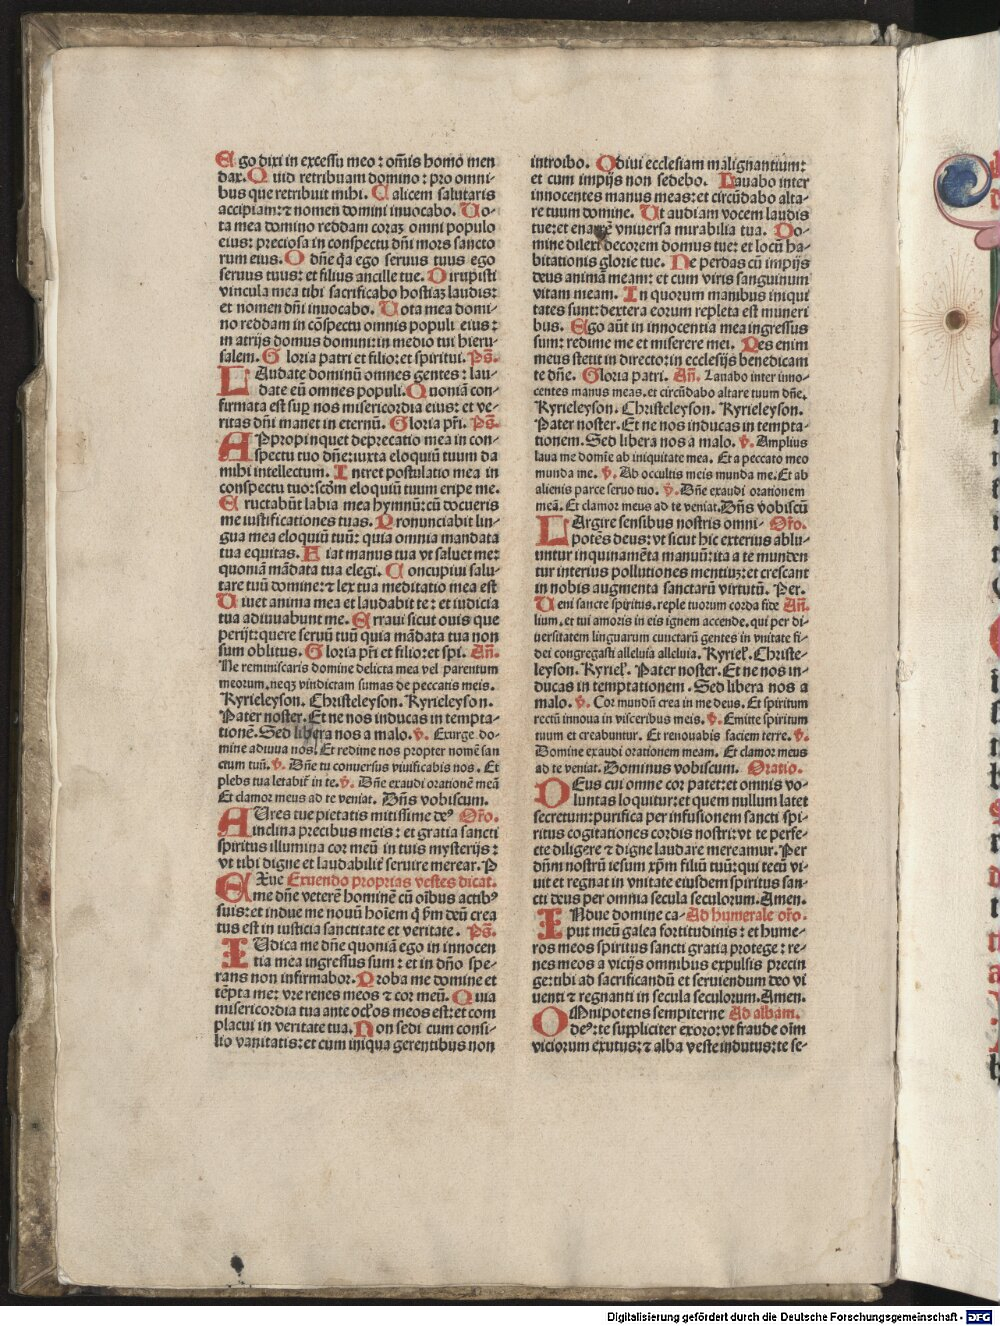 Ego dixi in excessu meo : om̄is homo men
dax. Quid retribuam domino : pro omni-
bus que retribuit mihi. Calicem salutaris
accipiam: ⁊ nomen domini inuocabo. Uo-
ta mea domino reddam coraꝫ omni populo
eius: preciosa in conspectu dn̄i mors sancto
rum eius. O dn̄e q̄a ego seruus tuus ego
seruus tuus: et filius ancille tue. Dirupisti
vincula mea tibi sacrificabo hostiaꝫ laudis:
et nomen dn̄i inuocabo. Uota mea domi-
no reddam in cōspectu omnis populi eius:
in atrijs domus domini: in medio tui hieru-
salem. Gloria patri et filio: et spiritui. Ps̄.
LAudate dominū omnes gentes : lau-
date eū omnes populi. Quoniā con-
firmata est suꝑ nos misericordia eius: et ve-
ritas dn̄i manet in eternū. Gloria pr̄i. Ps̄.
APpropinquet deprecatio mea in con-
spectu tuo dn̄e: iuxta eloquiū tuum da
mihi intellectum. Intret postulatio mea in
conspectu tuo: scd̄m eloquiū tuum eripe me.
Eructabūt labia mea hymnū: cū docueris
me iustificationes tuas. Pronunciabit lin-
gua mea eloquiū tuū: quia omnia mandata
tua equitas. Fiat manus tua vt saluet me:
quoniā mādata tua elegi. Concupiui salu-
tare tuū domine: ⁊ lex tua meditatio mea est
Uiuet anima mea et laudabit te : et iudicia
tua adiuuabunt me. Erraui sicut ouis que
perijt: quere seruū tuū quia mādata tua non
sum oblitus. Gloria pr̄i et filio: et spi. Añ.
Ne reminiscaris domine delicta mea vel parentum
meorum, neqꝫ vindictam sumas de peccatis meis.
Kyrieleyson. Christeleyson. Kyrieleyson.
Pater noster. Et ne nos inducas in tempta-
tionē. Sed libera nos a malo. v̄. Exurge do-
mine adiuua nos. Et redime nos propter nomē san
ctum tuū. v̄. Dn̄e tu conuersus viuificabis nos. Et
plebs tua letabit̄ in te. v̄. Dn̄e exaudi orationē meā
Et clamor meus ad te veniat. Dn̄s vobiscum.
AUres tue pietatis mitissime deꝰ Or̄o.
inclina precibus meis : et gratia sancti
spiritus illumina cor meū in tuis mysterijs :
vt tibi digne et laudabilit̄ seruire merear. P
EXue Exuendo proprias vestes dicat.
me dn̄e veterē hominē cū oībus actibꝰ
suis: et indue me nouū hoīem q̄ ẜm deū crea
tus est in iusticia sanctitate et veritate. Ps̄.
IUdica me dn̄e quoniā ego in innocen
tia mea ingressus sum : et in dn̄o spe-
rans non infirmabor. Proba me domine et
tēpta me: vre renes meos ⁊ cor meū. Quia
misericordia tua ante oc̄los meos est: et com
placui in veritate tua. Non sedi cum consi-
lio vanitatis: et cum iniqua gerentibus non
introibo. Odiui ecclesiam malignantium:
et cum impijs non sedebo. Lauabo inter
innocentes manus meas: et circūdabo alta-
re tuum domine. Ut audiam vocem laudis
tue: et enarrē vniuersa mirabilia tua. Do-
mine dilexi decorem domus tue: et locū ha-
bitationis glorie tue. Ne perdas cū impijs
deus animā meam: et cum viris sanguinum
vitam meam. In quorum manibus iniqui
tates sunt: dextera eorum repleta est muneri
bus. Ego aūt in innocentia mea ingressus
sum: redime me et miserere mei. Pes enim
meus stetit in directo: in ecclesijs benedicam
te dn̄e. Gloria patri. Añ. Lauabo inter inno-
centes manus meas. et circūdabo altare tuum dn̄e.
Kyrieleyson. Christeleyson. Kyrieleyson.
Pater noster. Et ne nos inducas in tempta-
tionem. Sed libera nos a malo. v̄. Amplius
laua me domīe ab iniquitate mea. Et a peccato meo
munda me. v̄. Ab occultis meis munda me. Et ab
alienis parce seruo tuo. v̄. Dn̄e exaudi orationem
meā. Et clamor meus ad te veniat. Dn̄s vobiscū
LArgire sensibus nostris omni- Or̄o.
potēs deus: vt sicut hic exterius ablu-
untur inquinamēta manuū: ita a te munden
tur interius pollutiones mentiuꝫ: et crescant
in nobis augmenta sanctarū virtutū. Per.
Ueni sancte spiritus. reple tuorum corda fide Añ.
lium. et tui amoris in eis ignem accende. qui per di-
uersitatem linguarum cunctarū gentes in vnitate fi-
dei congregasti alleluia alleluia. Kyriel̄. Christe-
leyson. Kyriel̄. Pater noster. Et ne nos in-
ducas in temptationem. Sed libera nos a
malo. v̄. Cor mundū crea in me deus. Et spiritum
rectū innoua in visceribus meis. v̄. Emitte spiritum
tuum et creabuntur. Et renouabis faciem terre. v̄.
Domine exaudi orationem meam. Et clamor meus
ad te veniat. Dominus vobiscum. Oratio.
DEus cui omne cor patet: et omnis vo-
luntas loquitur: et quem nullum latet
secretum: purifica per infusionem sancti spi-
ritus cogitationes cordis nostri: vt te perfe-
cte diligere ⁊ digne laudare mereamur. Per
dn̄m nostrū iesum xp̄m filiū tuū: qui tecū vi-
uit et regnat in vnitate eiusdem spiritus san-
cti deus per omnia secula seculorum. Amen.
INdue domine ca- Ad humerale or̄o.
put meū galea fortitudinis : et hume-
ros meos spiritus sancti gratia protege : re-
nes meos a vicijs omnibus expulsis precin
ge: tibi ad sacrificandū et seruiendum deo vi
uenti ⁊ regnanti in secula seculorum. Amen.
OMnipotens sempiterne Ad albam.
deꝰ: te suppliciter exoro: vt fraude oīm
viciorum exutus: ⁊ alba veste indutus: te se-
Digitalisierung gefördert durch die Deutsche Forschungsgemeinschaft - DFG